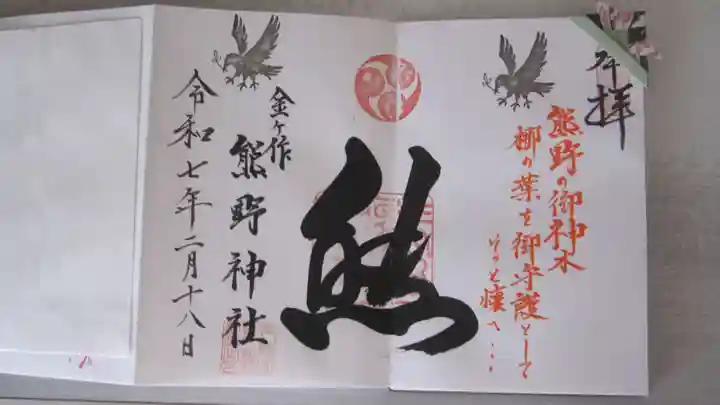 奉拝
熊野の御神木
梛の葉を御守護として
そっと懐へ…
熊
金ヶ作
熊野神社
令和七年二月十八日